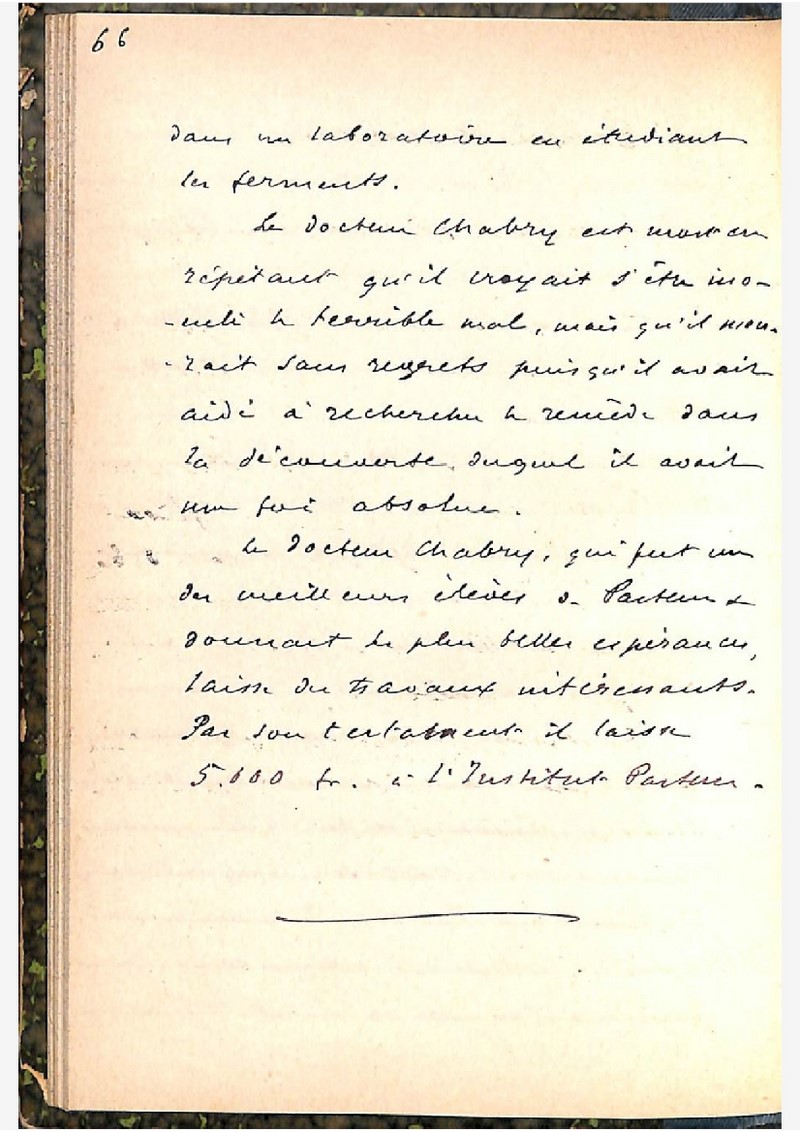 66
dans un laboratoire en étudiant
les ferments.
Le docteur Chabry est mort en
répétant qu'il croyait s'être ino-
-culé le terrible mal, mais qu'il mou-
-rait sans regrets puisqu'il avait
aidé à rechercher le remède dans
la découverte duquel il avait
une foi absolue.
Le docteur Chabry, qui fut un
des meilleurs élèves de Pasteur &
donnait les plus belles espérances,
laisse des travaux intéressants.
Par son testament il laisse
5.000 fr. à l'Institut Pasteur.